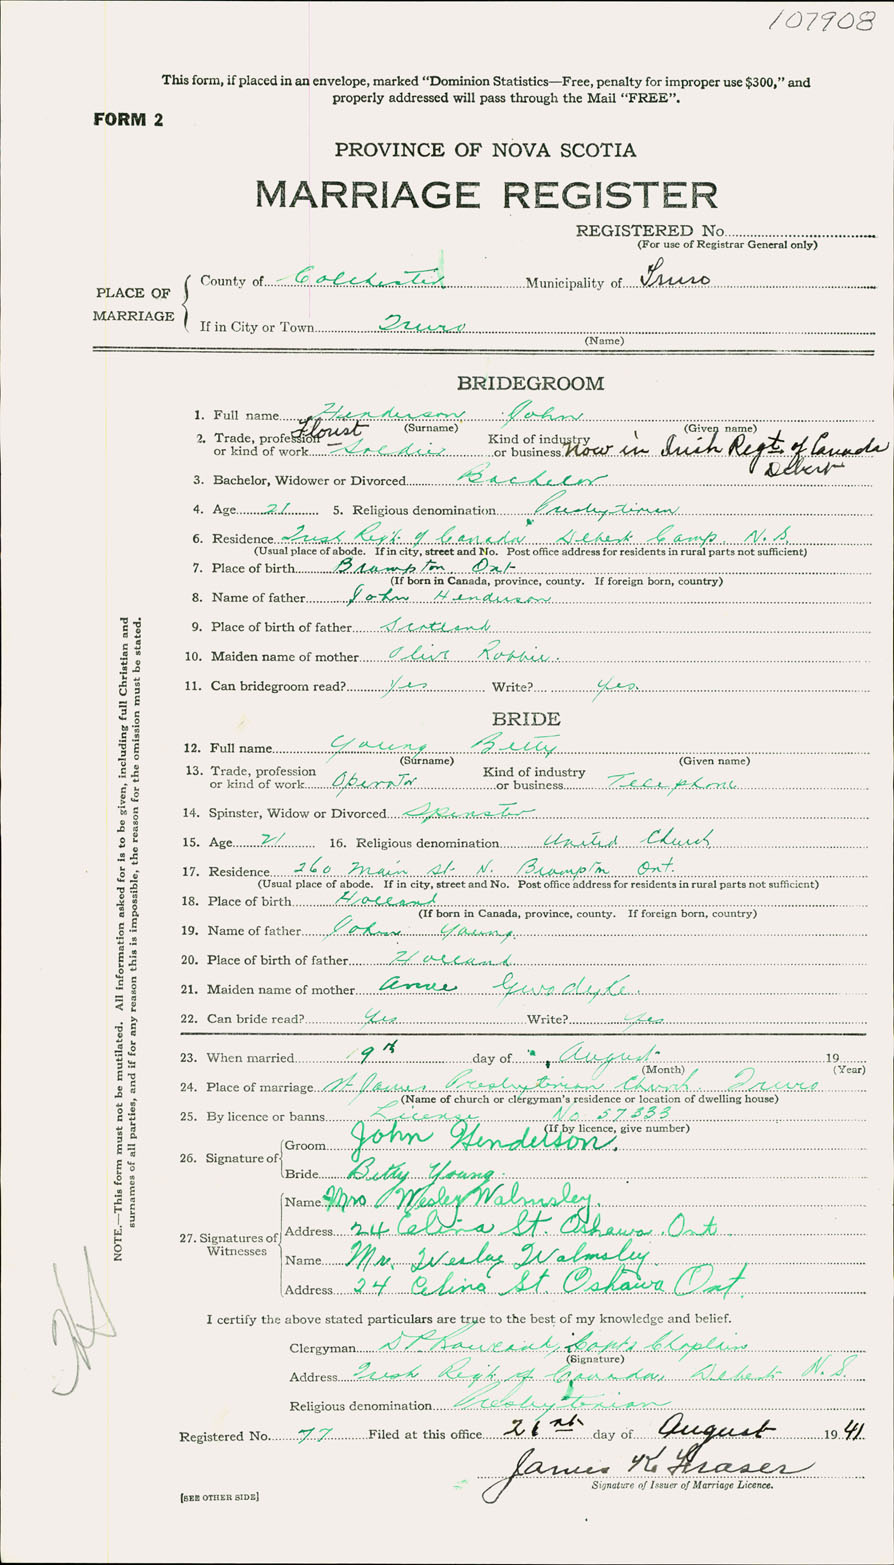 107908
This form, if placed in an envelope, marked “Dominion Statistics—Free, penalty for improper use $300,” and
properly addressed will pass through the Mail “FREE”.
FORM 2
PROVINCE OF NOVA SCOTIA
MARRIAGE REGISTER
REGISTERED No.
(For use of Registrar General only)
PLACE OF MARRIAGE
County of Colchester Municipality of Truro
If in City or Town Truro
(Name)
BRIDEGROOM
1. Full name Henderson John
(Surname) (Given name)
Florist
2. Trade, profession or kind of work Soldier Kind of industry or business Now in Irish Regt. of Canada
Debert
3. Bachelor, Widower or Divorced Bachelor
4. Age 21 5. Religious denomination Presbyterian
6. Residence Irish Regt. of Canada Debert Camp N.S.
(Usual place of abode. If in city, street and No. Post office address for residents in rural parts not sufficient)
7. Place of birth Brampton, Ont
(If born in Canada, province, county. If foreign born, country)
8. Name of father John Henderson
9. Place of birth of father Scotland
10. Maiden name of mother Olive Robbie.
11. Can bridegroom read? Yes Write? Yes.
BRIDE
12. Full name Young Betty
(Surname) (Given name)
13. Trade, profession or kind of work Operator Kind of industry or business Telephone
14. Spinster, Widow or Divorced Spinster
15. Age 21 16. Religious denomination United Church
17. Residence 260 Main St. N. Brampton Ont.
(Usual place of abode. If in city, street and No. Post office address for residents in rural parts not sufficient)
18. Place of birth Holland
(If born in Canada, province, county. If foreign born, country)
19. Name of father John Young.
20. Place of birth of father Holland
21. Maiden name of mother Anne
22. Can bride read? Yes Write? Yes
23. When married 9th day of August 19
(Month) (Year)
24. Place of marriage St James Presbyterian Church. Truro
(Name of church or clergyman's residence or location of dwelling house)
25. By licence or banns License No 57333
(If by licence, give number)
26. Signature of
Groom John Henderson.
Bride Betty Young.
27. Signatures of Witnesses
Name Mrs Wesley Walmsley.
Address 24 Celina St. Oshawa. Ont
Name Mr. Wesley Walmsley.
Address 24 Celina St. Oshawa Ont.
I certify the above stated particulars are true to the best of my knowledge and belief.
Clergyman D P Capt. Chaplain
(Signature)
Address Irish Regt. of Canada Debert N.S.
Religious denomination Presbyterian
Registered No. 77 Filed at this office 21 day of August 19 41
James K Fraser
Signature of Issuer of Marriage Licence.
[SEE OTHER SIDE]
NOTE.—This form must not be mutilated. All information asked for is to be given, including full Christian and
surnames of all parties, and if for any reason this is impossible, the reason for the omission must be stated.